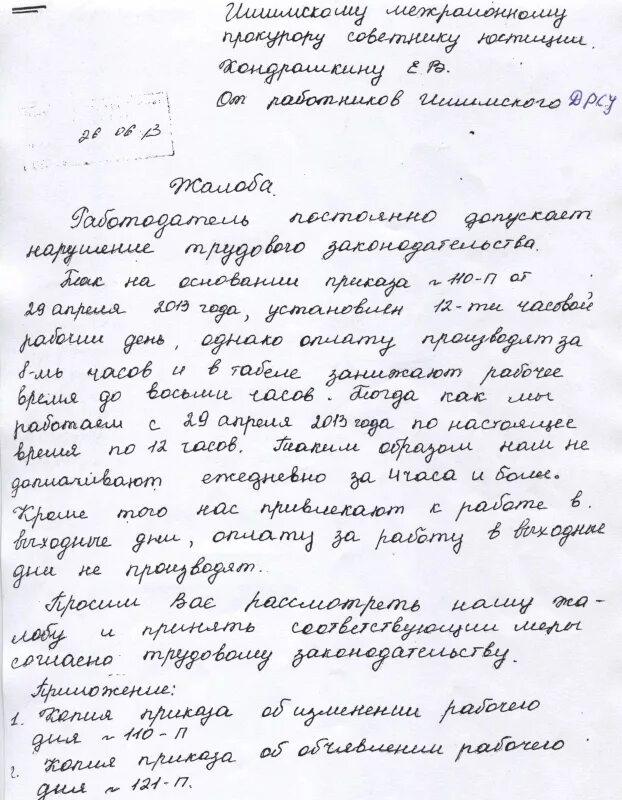 Ишимскому межрайонному
прокурору советнику юстиции.
Кондрашкину Е.В.
От работников Ишимского ДРСУ
26 06 13
Жалоба.
Работодатель постоянно допускает
нарушение трудового законодательства.
Так на основании приказа ~ 110-П от
29 апреля 2013 года, установлен 12-ти часовой
рабочии день, однако оплату производят за
8-мь часов и в табеле занижают рабочее
время до восьми часов. Тогда как мы
работаем с 29 апреля 2013 года по настоящее
время по 12 часов. Таким образом нам не
доплачивают ежедневно за 4 часа и более.
Кроме того нас привлекают к работе в.
выходные дни, оплату за работу в выходные
дни не производят.
Просим Вас рассмотреть нашу жа-
лобу и принять соответствующии меры
согласно трудовому законодательству.
Приложение:
1. Копия приказа об изменении рабочего
дня ~ 110-П
2. Копия приказа об объявлении рабочего
дня ~ 121-П.